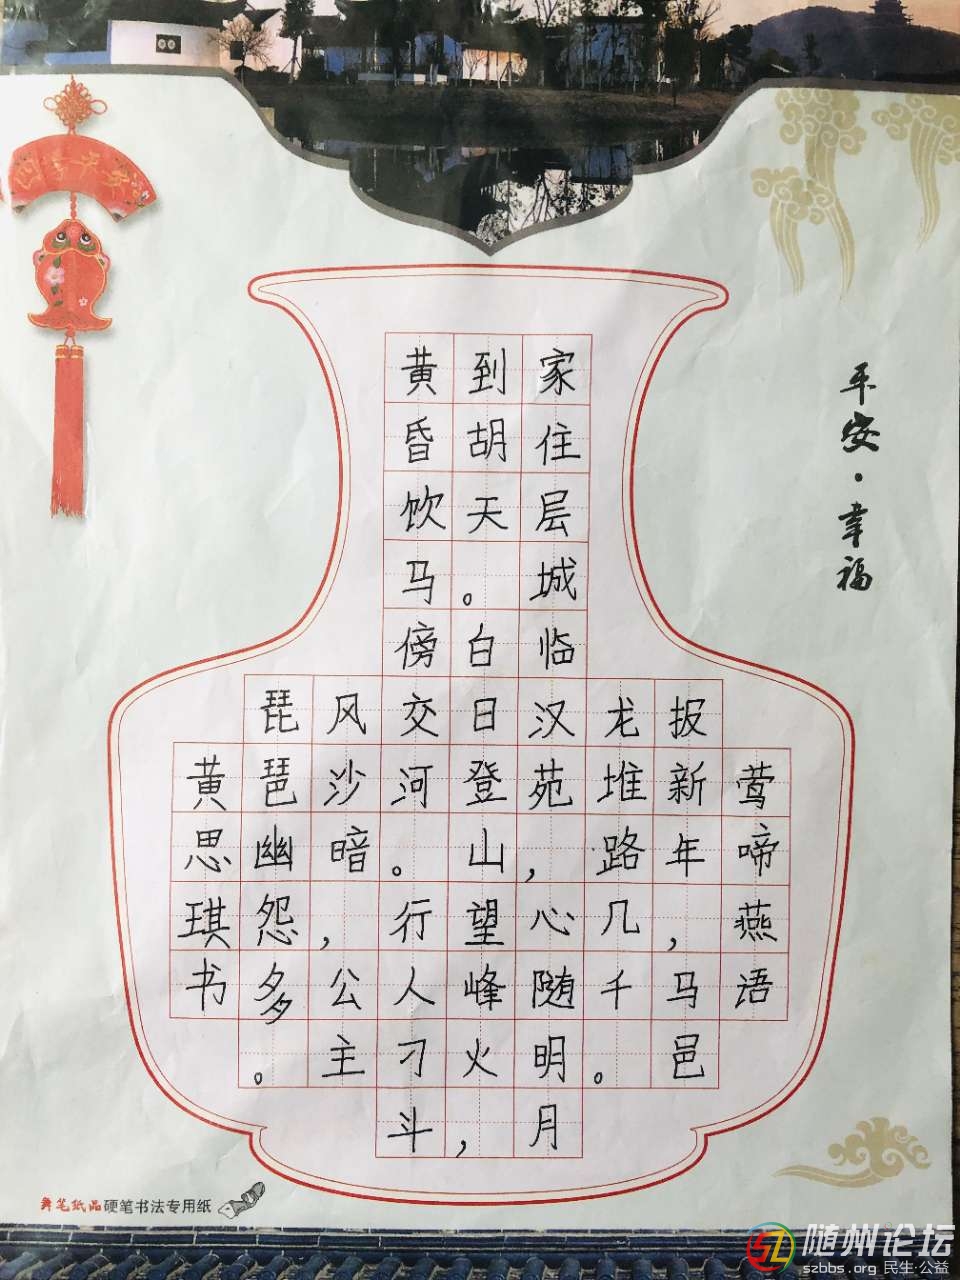 莺啼燕语
报新年，马邑
龙堆路几千。
家住层城临汉苑，心随明月
到胡天。白日登山望峰火，
黄昏饮马傍交河。行人刁斗
风沙暗，公主
琵琶幽怨多。
黄思琪书
平安·幸福
笔纸品硬笔书法专用纸
随州论坛
szbbs.org 民生·公益